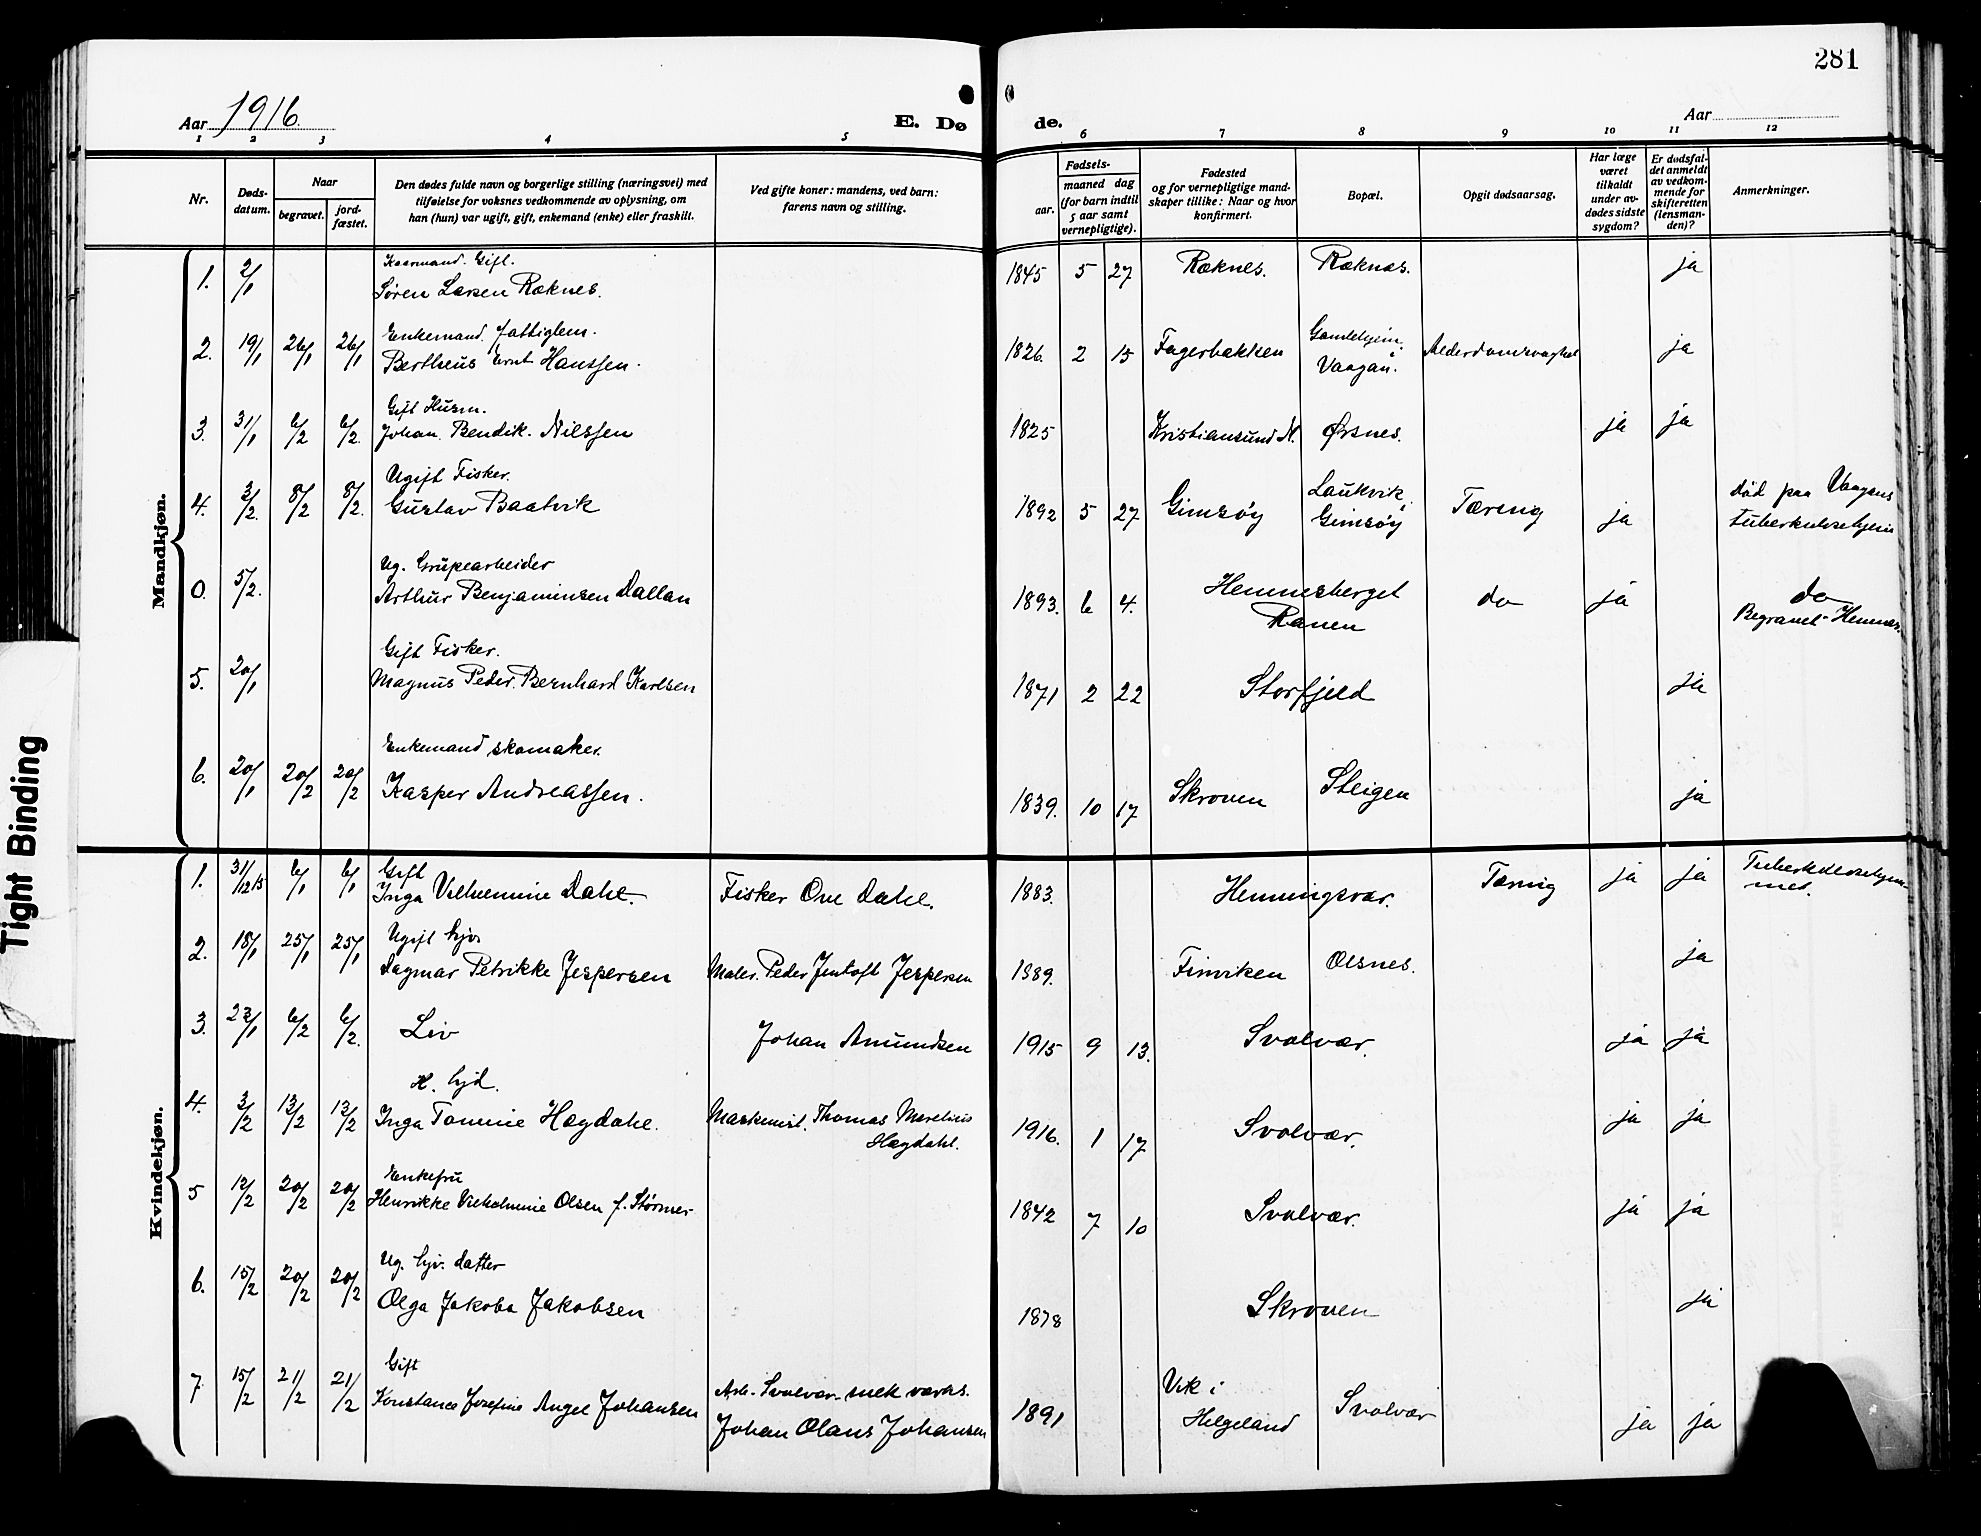 281
Aar 1916.
E. Dø
de.
Aar
1 2 3 4 5 6 7 8 9 10 11 12
Nr.
Døds-
datum.
Naar
begravet.
jord-
fæstet.
Den dødes fulde navn og borgerlige stilling (næringsvei) med
tilføielse for voksnes vedkommende av oplysning, om
han (hun) var ugift, gift, enkemand (enke) eller fraskilt.
Ved gifte koner: mandens, ved barn:
farens navn og stilling.
Fødsels-
aar.
maaned dag
(for barn indtil
5 aar samt
vernepligtige).
Fødested
og for vernepligtige mand-
skaper tillike: Naar og hvor
konfirmert.
Bopæl.
Opgit dødsaarsag.
Har læge
været
tilkaldt
under av-
dødes sidste
sygdom?
Er dødsfal-
det anmeldt
av vedkom-
mende for
skifteretten
(lensman-
den)?
Anmerkninger.
Mandkjøn.
Kaarmand. Gift.
1. 2/1 Søren Larsen Ræknes. 1845 5 27 Ræknes. Ræknes. ja
Enkemand. fattiglem.
2. 19/1 26/1 26/1 Bertheus Ernt Hanssen. 1826. 2 15 Fagerbakken Gamlehjem. i Vaagan. Alderdomssvaghet ja
Gift Husm.
3. 31/1 6/2 6/2. Johan. Bendik. Nilssen 1825 Kristiansund N. Ørsnes. ja ja
Ugift Fisker.
4. 3/2. 8/2 8/2. Gustav Baatvik 1892 5 27 Gimsøy Laukvik, Gimsøy Tæring ja død paa Vaagans
tuberkulosehjem
Ug. Grupearbeider
0. 5/2. Arthur Benjaminsen Dallan 1893. 6 4. Hemnesberget
Ranen do ja do
Begravet Hemnes.
Gift Fisker.
5. 20/1 Magnus Peder. Bernhard Karlsen 1871 2 22 Storfjeld ja
Enkemand skomaker.
6. 20/1 20/2 20/2 Kasper Andreassen. 1839. 10 17 Skroven Steigen ja
Kvindekjøn.
Gift
1. 31/12 15 6/1 6/1 Inga Vilhelmine Dahl. Fisker Ove Dahl. 1883. Henningsvær. Tæring ja ja Tuberkulosehjem-
met.
Ugift hjv
2. 18/1 25/1 25/1 Dagmar Petrikke Jespersen Maler. Peder Jentoft Jespersen 1889. Finviken Olsnes. ja
3. 23/1 6/2 6/2. Liv Johan Amundsen 1915 9 13. Svolvær. ja ja
H. hjd.
4. 3/2 13/2 13/2 Inga Tomine Hægdahl. Maskinist. Thomas Marelius
Hægdahl. 1916. 1 17 Svolvær. ja ja
Enkefru
5 12/2 20/2 20/2 Henrikke Vilhelmine Olsen f. Størmer 1842 7 10 Svolvær. ja ja
Ug. hjv. datter
6. 15/2 20/2 20/2 Olga Jakoba Jakobsen 1878 Skroven ja
Gift
7 15/2 21/2 21/2 Konstance Josefine Angel Johansen Arb. Svolvær mek værks.
Johan Olaus Johansen 1891 Vik i
Helgeland Svolvær ja ja
Tight Binding